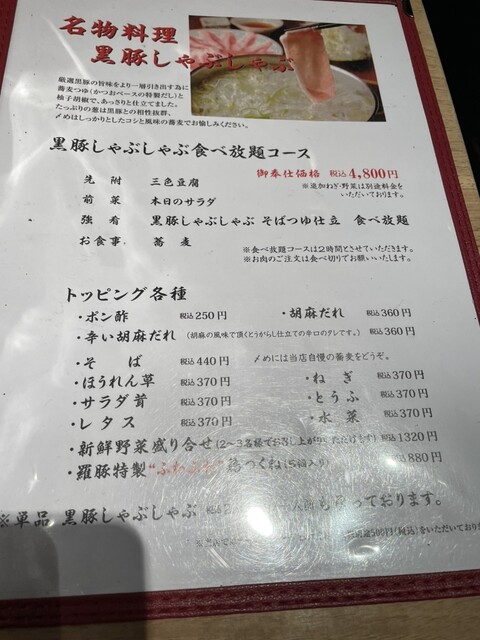 名物料理
黒豚しゃぶしゃぶ
厳選黒豚の旨味をより一層引き出す為に
蕎麦つゆ(かつおベースの特製だし)と
柚子胡椒で、あっさりと仕立てました。
たっぷりの葱は黒豚との相性抜群。
〆めはしっかりとしたコシと風味の蕎麦でお愉しみください。
黒豚しゃぶしゃぶ食べ放題コース
御奉仕価格 税込4,800円
※追加ねぎ・野菜は別途料金を
いただいております。
先附 三色豆腐
前菜 本日のサラダ
強肴 黒豚しゃぶしゃぶ そばつゆ仕立 食べ放題
お食事 蕎麦
※食べ放題コースは2時間とさせていただきます。
※お肉のご注文は食べ切りでお願いします。
トッピング各種
・ポン酢 税込250円 ・胡麻だれ 税込360円
・辛い胡麻だれ (胡麻の風味で頂くとうがらし仕立ての辛口のタレです。) 税込360円
・そば 税込440円 〆めには当店自慢の蕎麦をどうぞ。
・ほうれん草 税込370円 ・ねぎ 税込370円
・サラダ茸 税込370円 ・とうふ 税込370円
・レタス 税込370円 ・水菜 税込370円
・新鮮野菜盛り合せ(2〜3名様でお召し上がりいただけます) 税込1320円
・羅豚特製 つくね(5個入り) 880円
※単品 黒豚しゃぶしゃぶ 税込 っております。
500円(税込)をいただいており